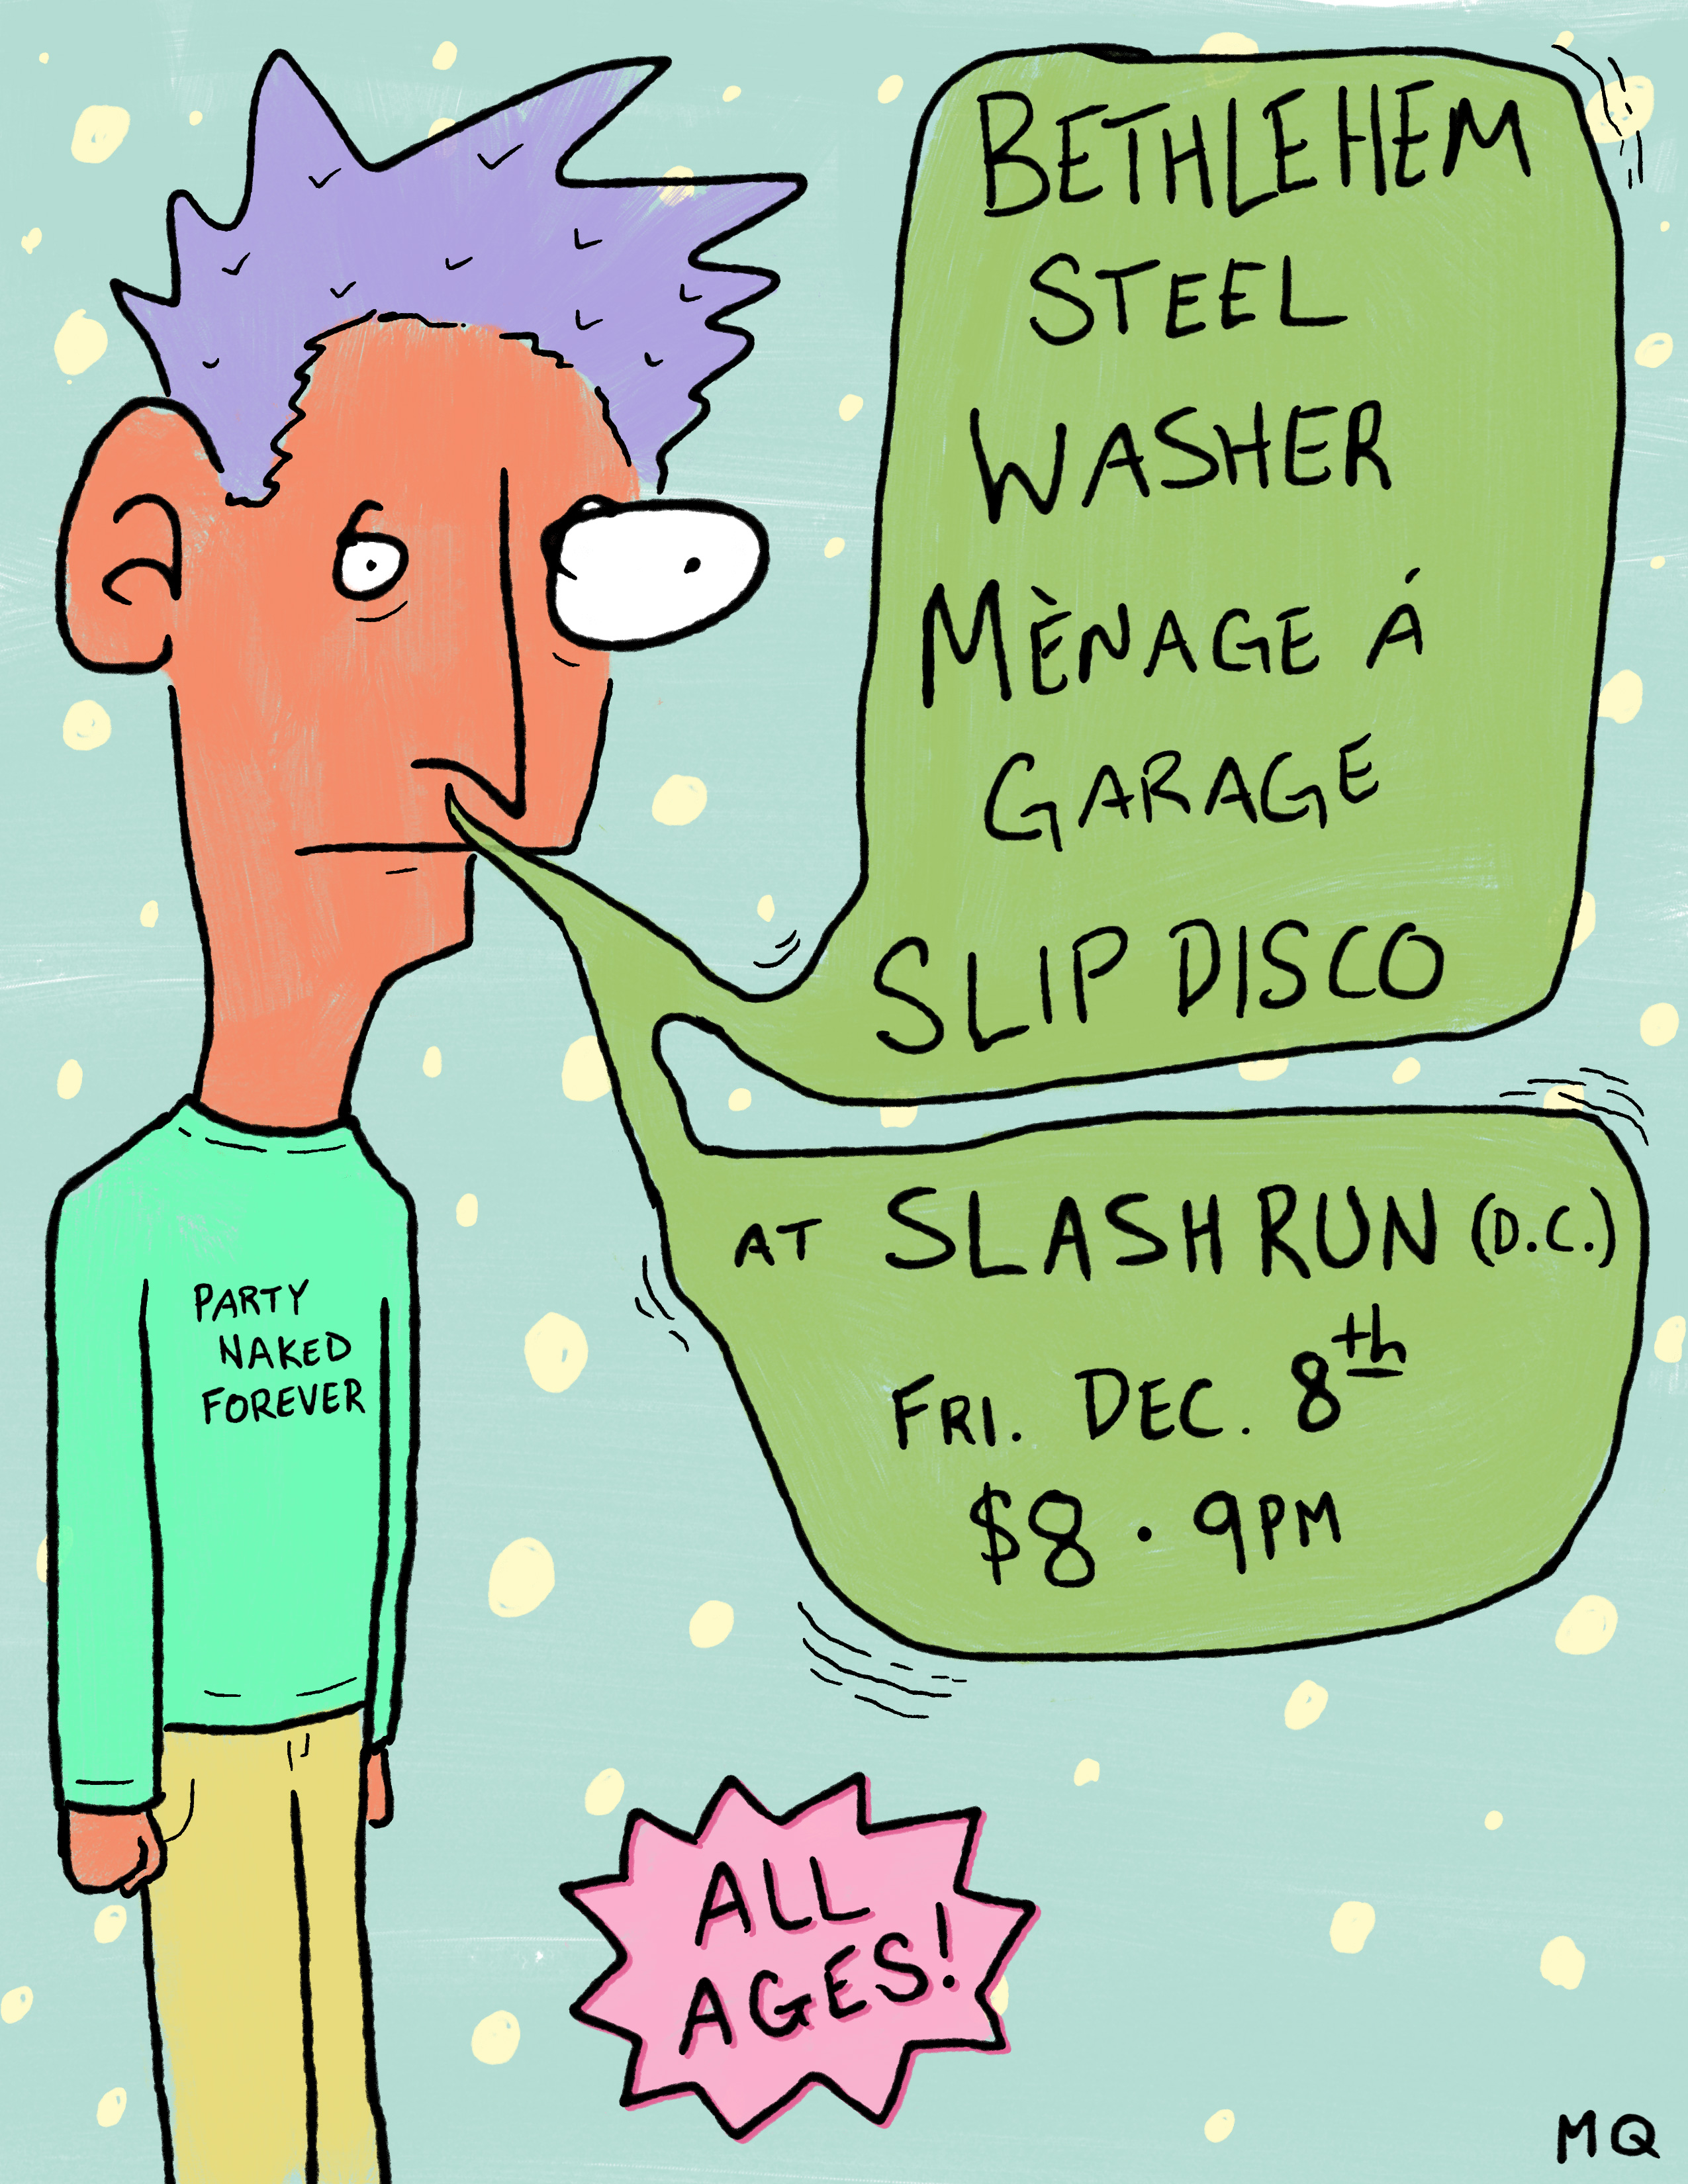 BETHLEHEM
STEEL
WASHER
MÈNAGE Á
GARAGE
SLIP DISCO
AT SLASH RUN (D.C.)
FRI. DEC. 8th
$8 · 9PM
PARTY
NAKED
FOREVER
ALL
AGES!
MQ